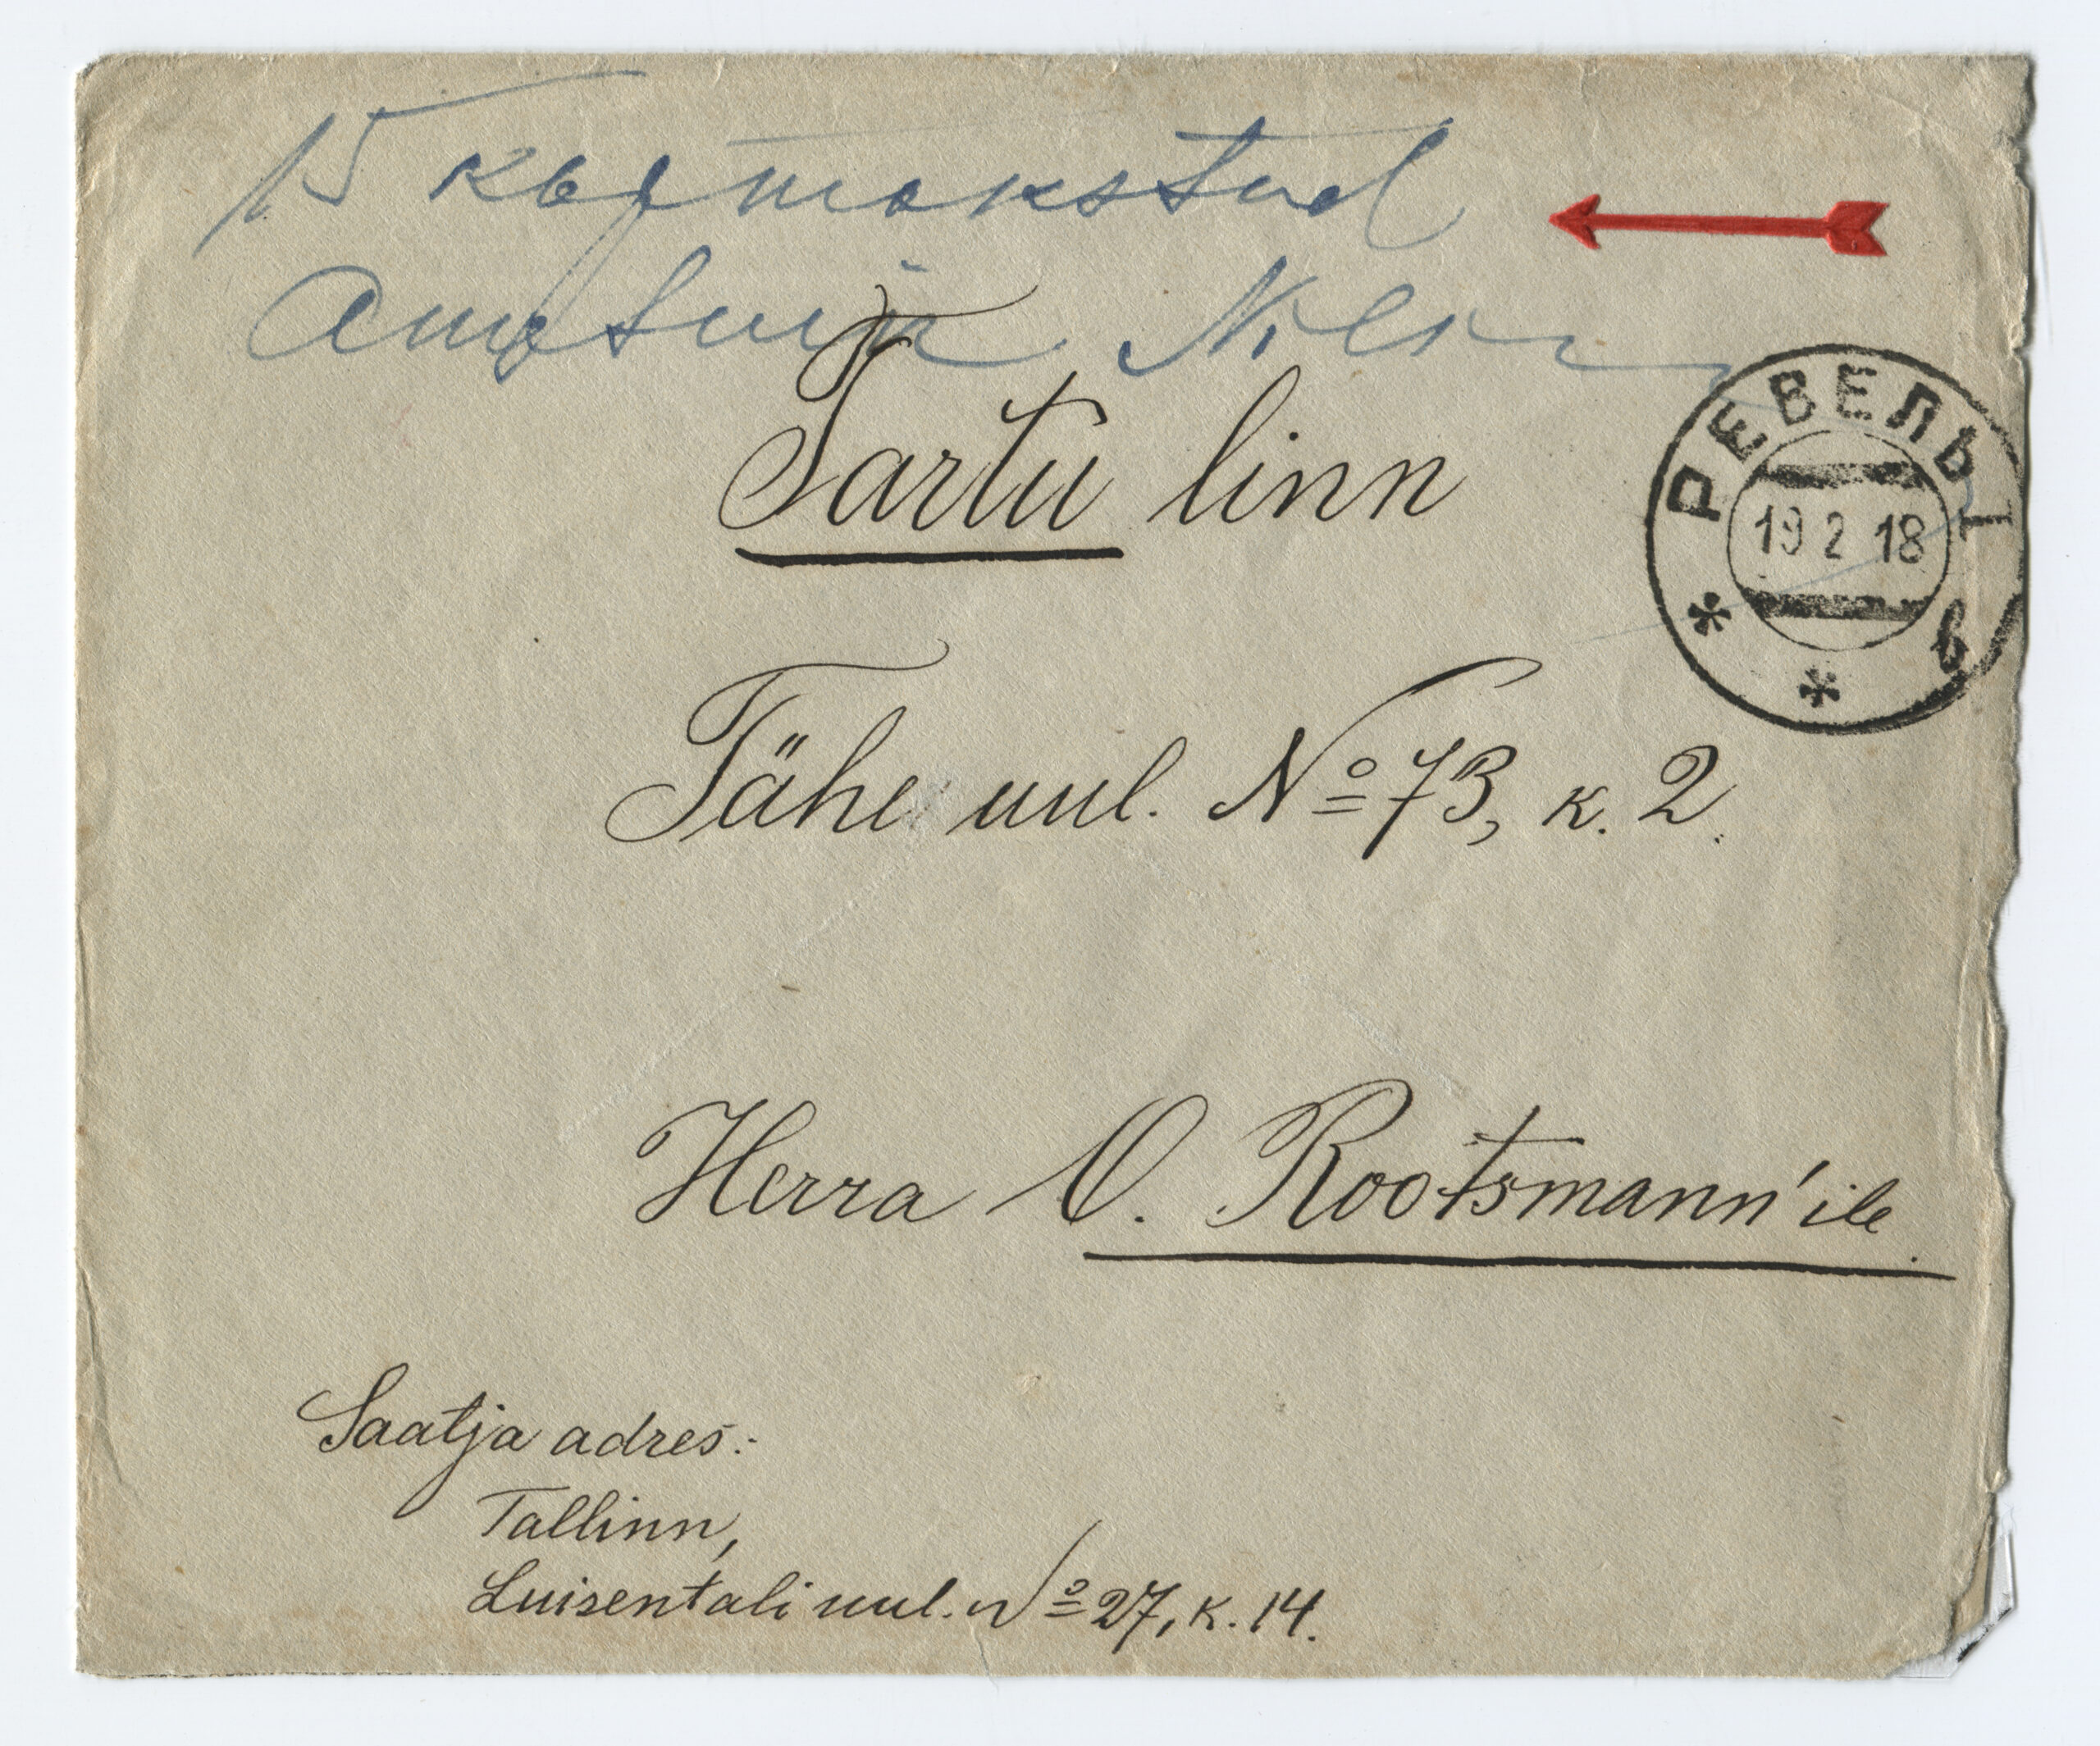 15 kop makstud
Ametnik
РЕВЕЛЬ 1
19 2 18
в
Tartu linn
Tähe uul. № 73, k. 2.
Herra O. Rootsmann'ile.
Saatja adres:
Tallinn,
Luisentali uul. № 27, k. 14.